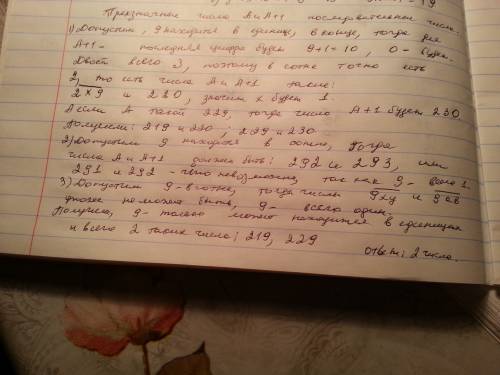 Трехзначные числа А и А+1 последовательные числа.
1) Допустим, 9 находится в единице, в конце, тогда для
А+1 - последняя цифра будет 9+1=10, 0 - будет.
Двоек всего 3, поэтому в сотне точно есть
2, то есть числа А и А+1 такие:
2x9 и 220, значит x будет 1
А если А такой 229, тогда число А+1 будет 230
Получили: 219 и 220, 229 и 230
2) Допустим 9 находится в , тогда
числа А и А+1 должен быть: 292 и 293, или
291 и 292 - невозможно, так как 9 - всего 1.
3) Допустим 9 - в сотне, тогда числы 9xy и 9ab
не может быть, 9 - всего один.
Получили, 9 - только может находится в единицах
и всего 2 таких числа: 219, 229
Ответ: 2 числа.